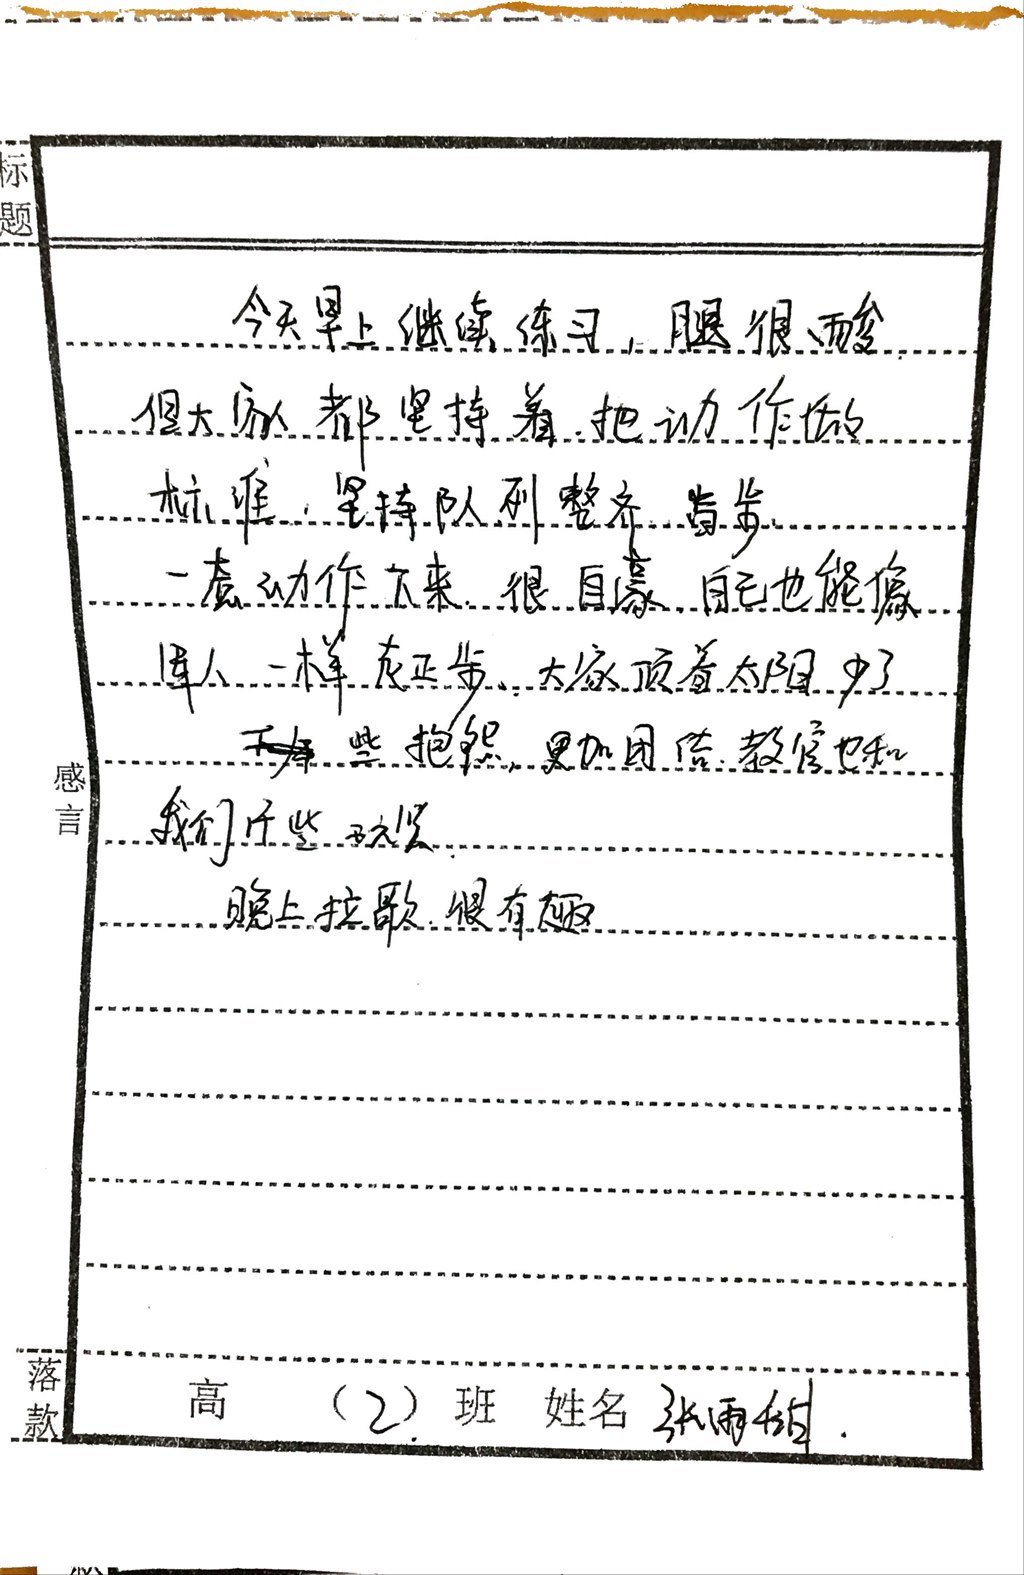 标题
今天早上继续练习，腿很酸
但大家都坚持着.把动作做
标准.坚持队列整齐.与步.
一套动作下来.很自豪.自己也能像
军人一样走正步、大家顶着太阳少了
些抱怨,更加团结.教官也和
我们开些玩笑.
晚上拉歌.很有趣
感言
落款
高 （2）班 姓名 张雨